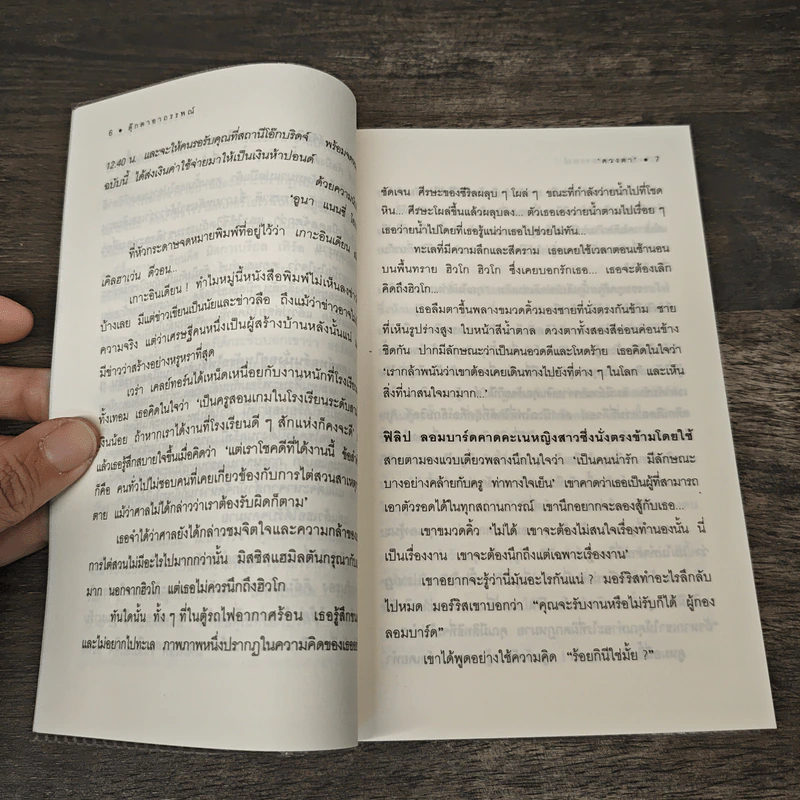 6 • ตุ๊กตาอาถรรพณ์
12.40 น. และจะให้คนรอรับคุณที่สถานีโอ๊กบริดจ์ พร้อมจดหมาย
ฉบับนี้ ได้ส่งเงินค่าใช้จ่ายมาให้เป็นเงินห้าปอนด์
ด้วยความ
'อูนา แนนซี่
ที่หัวกระดาษจดหมายพิมพ์ที่อยู่ไว้ว่า เกาะอินเดียน
เคิลฮาเว่น ดีวอน...
เกาะอินเดียน! ทำไมหมู่นี้หนังสือพิมพ์ไม่เห็นลงข่าว
บ้างเลย มีแต่ข่าวเขียนเป็นนัยและข่าวลือ ถึงแม้ว่าข่าวอาจไม่
ความจริง แต่ว่าเศรษฐีคนหนึ่งเป็นผู้สร้างบ้านหลังนั้นแน่
มีข่าวว่าสร้างอย่างหรูหราที่สุด
เวร่า เคลย์ทอร์นได้เหน็ดเหนื่อยกับงานหนักที่โรงเรียน
ทั้งเทอม เธอคิดในใจว่า 'เป็นครูสอนเกมในโรงเรียนระดับสาม
เงินน้อย ถ้าหากเราได้งานที่โรงเรียนดี ๆ สักแห่งก็คงจะดี'
แล้วเธอรู้สึกสบายใจขึ้นเมื่อคิดว่า 'แต่เราโชคดีที่ได้งานนี้ ข้อสำ
ก็คือ คนทั่วไปไม่ชอบคนที่เคยเกี่ยวข้องกับการไต่สวนสาเหตุ
ตาย แม้ว่าศาลไม่ได้กล่าวว่าเราต้องรับผิดก็ตาม'
เธอจำได้ว่าศาลยังได้กล่าวชมจิตใจและความกล้าของ
การไต่สวนไม่มีอะไรไปมากกว่านั้น มิสซิสแฮมิลตันกรุณากับ
มาก นอกจากฮิวโก แต่เธอไม่ควรนึกถึงฮิวโก
ทันใดนั้น ทั้ง ๆ ที่ในตู้รถไฟอากาศร้อน เธอรู้สึก
และไม่อยากไปทะเล ภาพภาพหนึ่งปรากฏในความคิดของเธออย่าง
'ดวงตา' • 7
ชัดเจน ศีรษะของซีริลผลุบ ๆ โผล่ ๆ ขณะที่กำลังว่ายน้ำไปที่โขด
หิน... ศีรษะโผล่ขึ้นแล้วผลุบลง... ตัวเธอเองว่ายน้ำตามไปเรื่อย ๆ
เธอว่ายน้ำไปโดยที่เธอรู้แน่ว่าเธอไปช่วยไม่ทัน...
ทะเลที่มีความลึกและสีคราม เธอเคยใช้เวลาตอนเช้านอน
บนพื้นทราย ฮิวโก ฮิวโก ซึ่งเคยบอกรักเธอ... เธอจะต้องเลิก
คิดถึงฮิวโก...
เธอลืมตาขึ้นพลางขมวดคิ้วมองชายที่นั่งตรงกันข้าม ชาย
ที่เห็นรูปร่างสูง ใบหน้าสีน้ำตาล ดวงตาทั้งสองสีอ่อนค่อนข้าง
ชิดกัน ปากมีลักษณะว่าเป็นคนอวดดีและโหดร้าย เธอคิดในใจว่า
'เรากล้าพนันว่าเขาต้องเคยเดินทางไปยังที่ต่าง ๆ ในโลก และเห็น
สิ่งที่น่าสนใจมามาก...'
ฟิลิป ลอมบาร์ดคาดคะเนหญิงสาวซึ่งนั่งตรงข้ามโดยใช้
สายตามองแวบเดียวพลางนึกในใจว่า 'เป็นคนน่ารัก มีลักษณะ
บางอย่างคล้ายกับครู ท่าทางใจเย็น' เขาคาดว่าเธอเป็นผู้ที่สามารถ
เอาตัวรอดได้ในทุกสถานการณ์ เขานึกอยากจะลองสู้กับเธอ...
เขาขมวดคิ้ว 'ไม่ได้ เขาจะต้องไม่สนใจเรื่องทำนองนั้น นี่
เป็นเรื่องงาน เขาจะต้องนึกถึงแต่เฉพาะเรื่องงาน'
เขาอยากจะรู้ว่านี่มันอะไรกันแน่? มอร์ริสทำอะไรลึกลับ
ไปหมด มอร์ริสเขาบอกว่า "คุณจะรับงานหรือไม่รับก็ได้ ผู้กอง
ลอมบาร์ด"
เขาได้พูดอย่างใช้ความคิด "ร้อยกินีใช่มั้ย?"